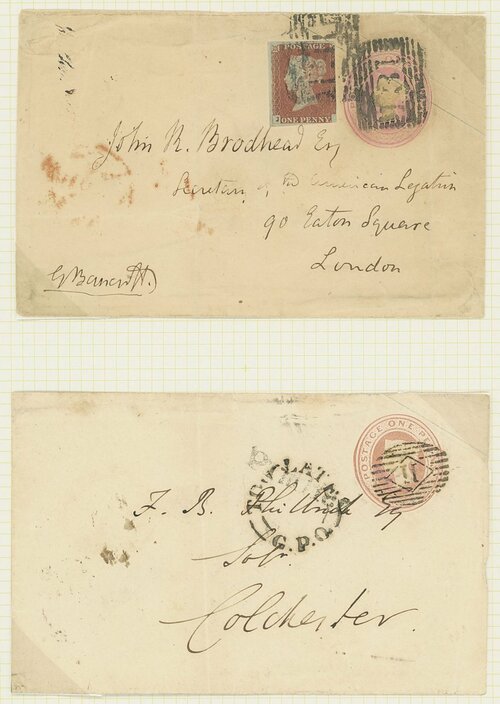 POSTAGE
ONE PENNY
John R. Brodhead Esq
Secretary of the American Legation
90 Eaton Square
London
G Bancroft.
POSTAGE ONE PE
11
TOO LATE
G.P.O.
F. B. Philbrick Esq
Solr.
Colchester.